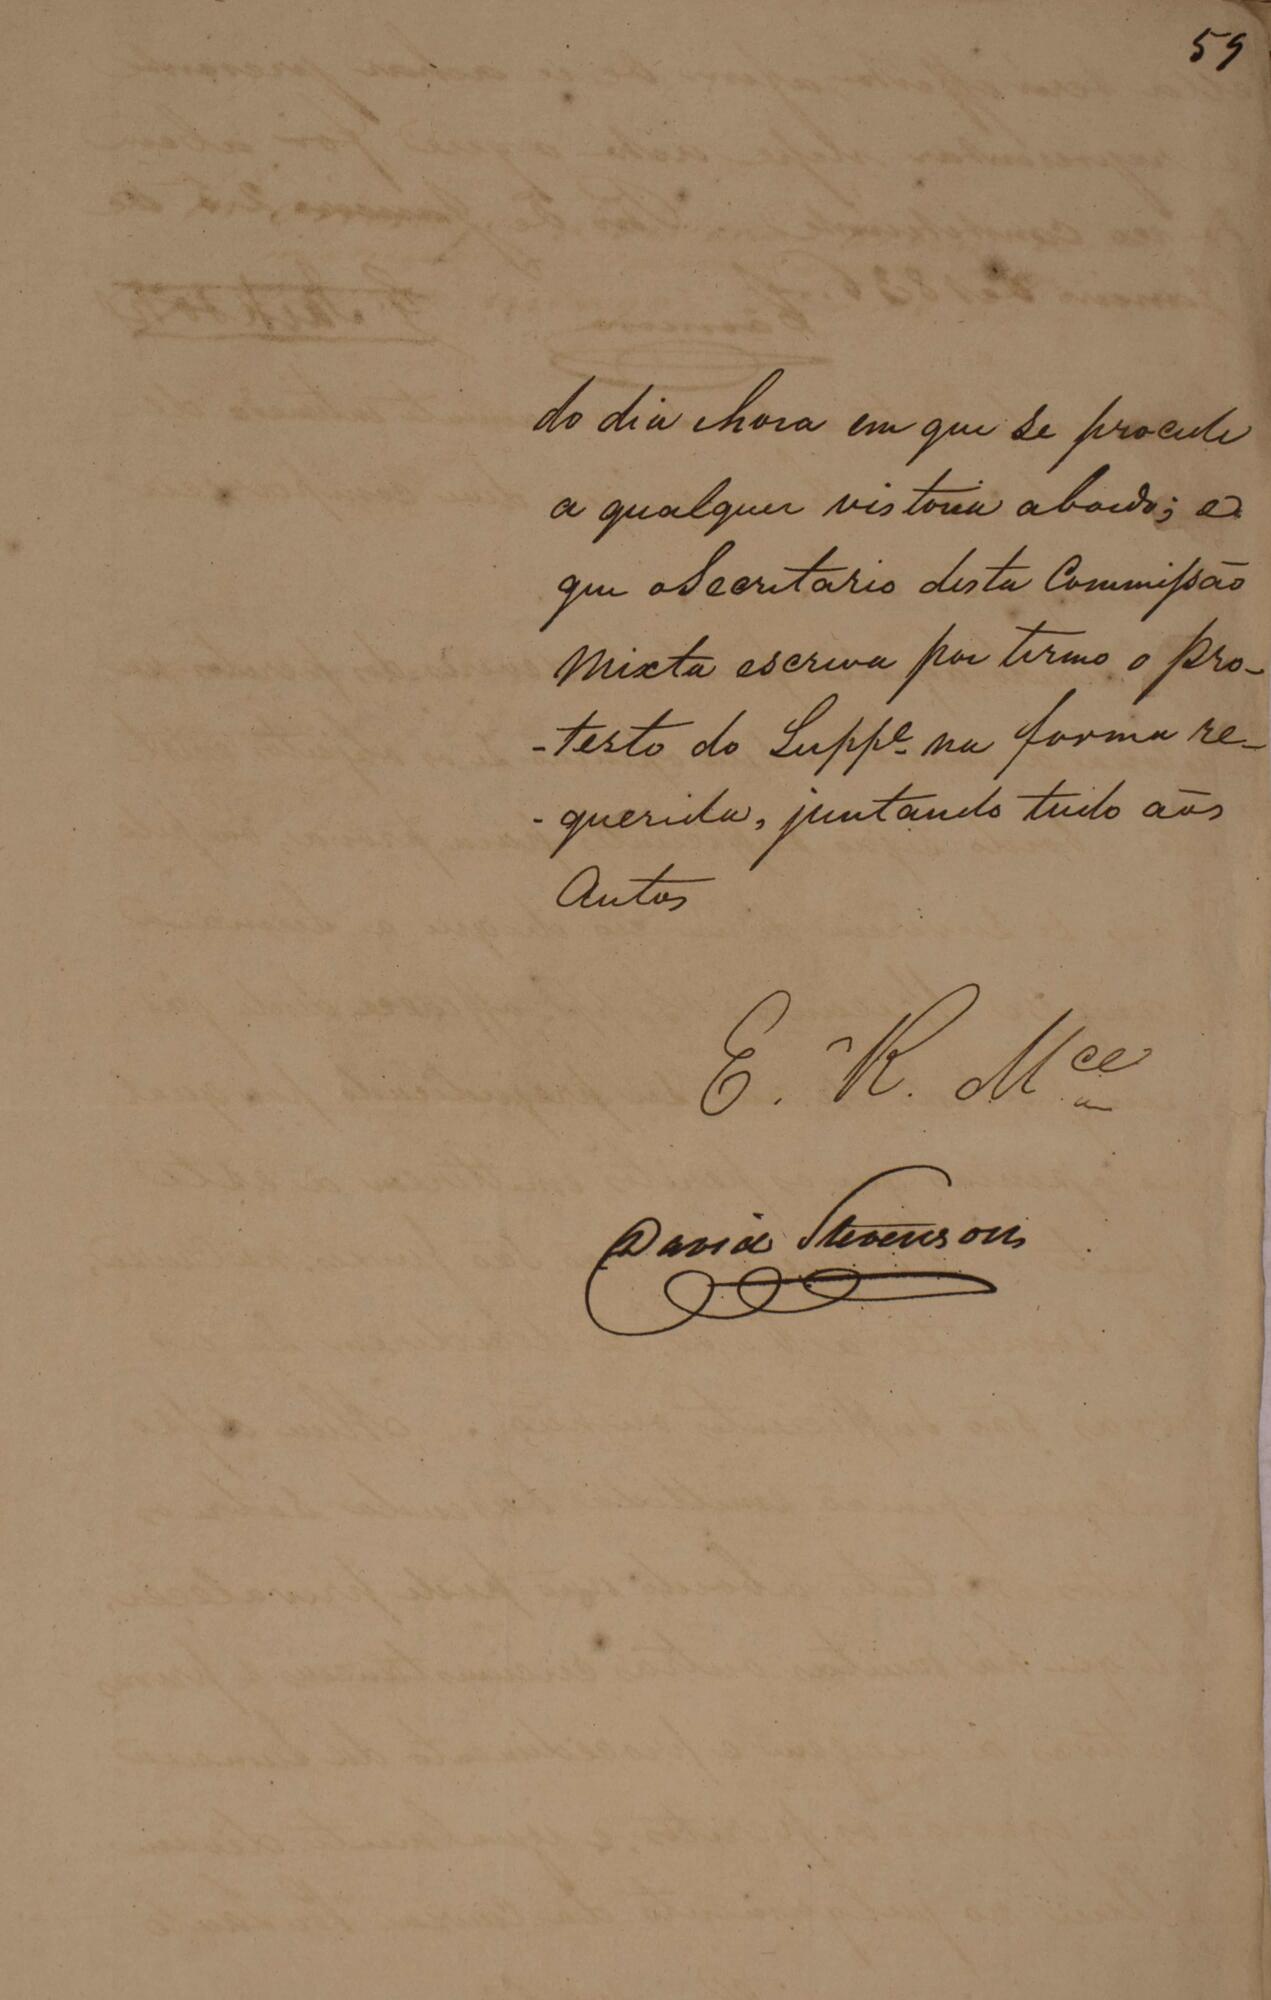 59
do dia ehora em que se procede
a qualquer vistoria abordo; e
que oSecretario desta Commissão
Mixta escreva por termo o pro-
-testo do Suppe. na forma re-
-querida, juntando tudo aõs
Autos
E. R. Mce
David Stevenson